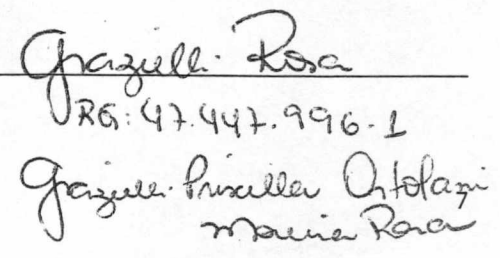 Grazielli Rosa
RG: 47.447.996-1
Grazielli Priscilla Ortolani
Moreira Rosa